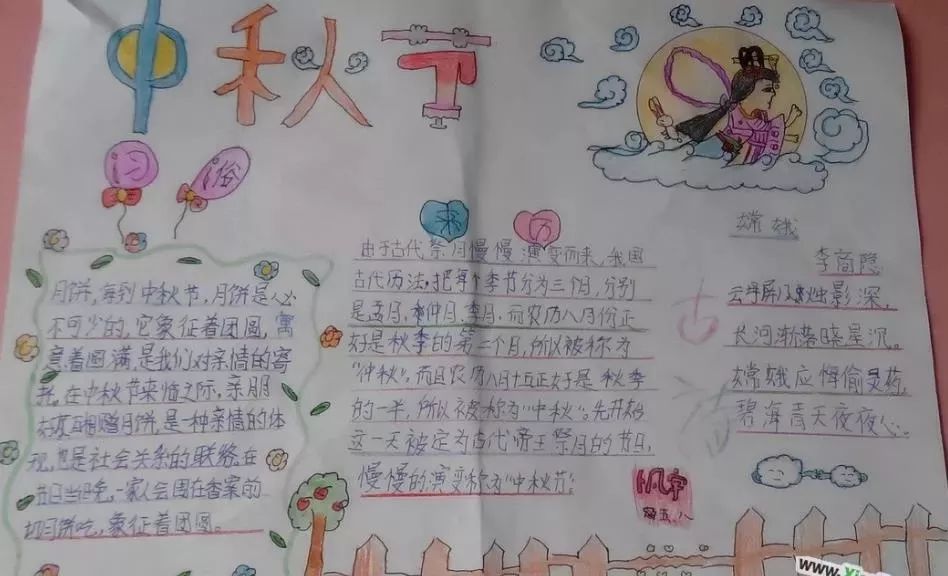 中秋节
习俗
月饼,每到中秋节,月饼是人必
不可少的,它象征着团圆,寓
意着圆满,是我们对亲情的寄
托,在中秋节来临之际,亲朋
好友互相赠月饼,是一种亲情的体
现,也是社会关系的联络,在
节日当晚,一家人会围在香案的
切月饼吃,象征着团圆。
来历
由于古代祭月慢慢演变而来,我国
古代历法,把每个季节分为三个月,分别
是孟月,仲月,季月,而农历八月份正
好是秋季的第二个月,所以被称为
“仲秋”,而且农历八月十五正好是秋季
的一半,所以被称为“中秋”。先开始
这一天被定为古代帝王祭月的节日,
慢慢的演变称为“中秋节”
嫦娥
李商隐
云母屏风烛影深,
长河渐落晓星沉。
嫦娥应悔偷灵药,
碧海青天夜夜心。
www.Xi